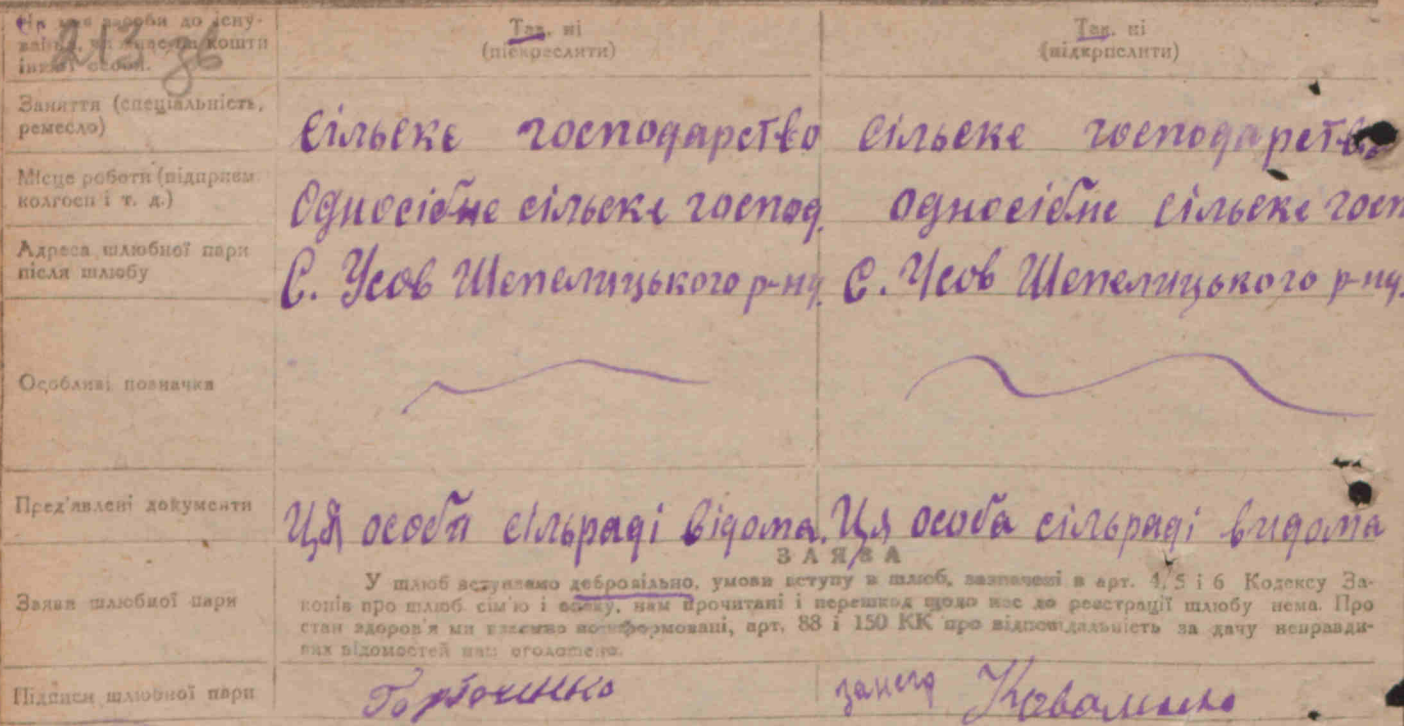 213 зв
Чи має засоби до існу-
вання, чи
кошти
іншої особи.
Так, ні
(підкреслити)
Так, ні
(підкреслити)
Заняття (спеціальність,
ремесло)
Сільске господарство
Сільске господарство
Місце роботи (підприєм
колгосп і т. д.)
Односібне сільске господ.
односібне сільске госп
Адреса шлюбної пари
після шлюбу
С. Усов Шепелицького р-ну.
С. Усов Шепелицького р-ну.
Особливі позначки
Пред'явлені документи
Ця особа сільраді відома.
Ця особа сільраді видома
ЗАЯВА
Заяви шлюбної пари
У шлюб вступаємо добровільно, умови вступу в шлюб, зазначені в арт. 4, 5 і 6 Кодексу За-
конів про шлюб сім'ю і опіку, нам прочитані і перешкод щодо нас до реєстрації шлюбу нема. Про
стан здоров'я ми взаємно поінформовані, арт. 88 і 150 КК про відповідальність за дачу неправди-
вих відомостей нам оголошено.
Підписи шлюбної пари